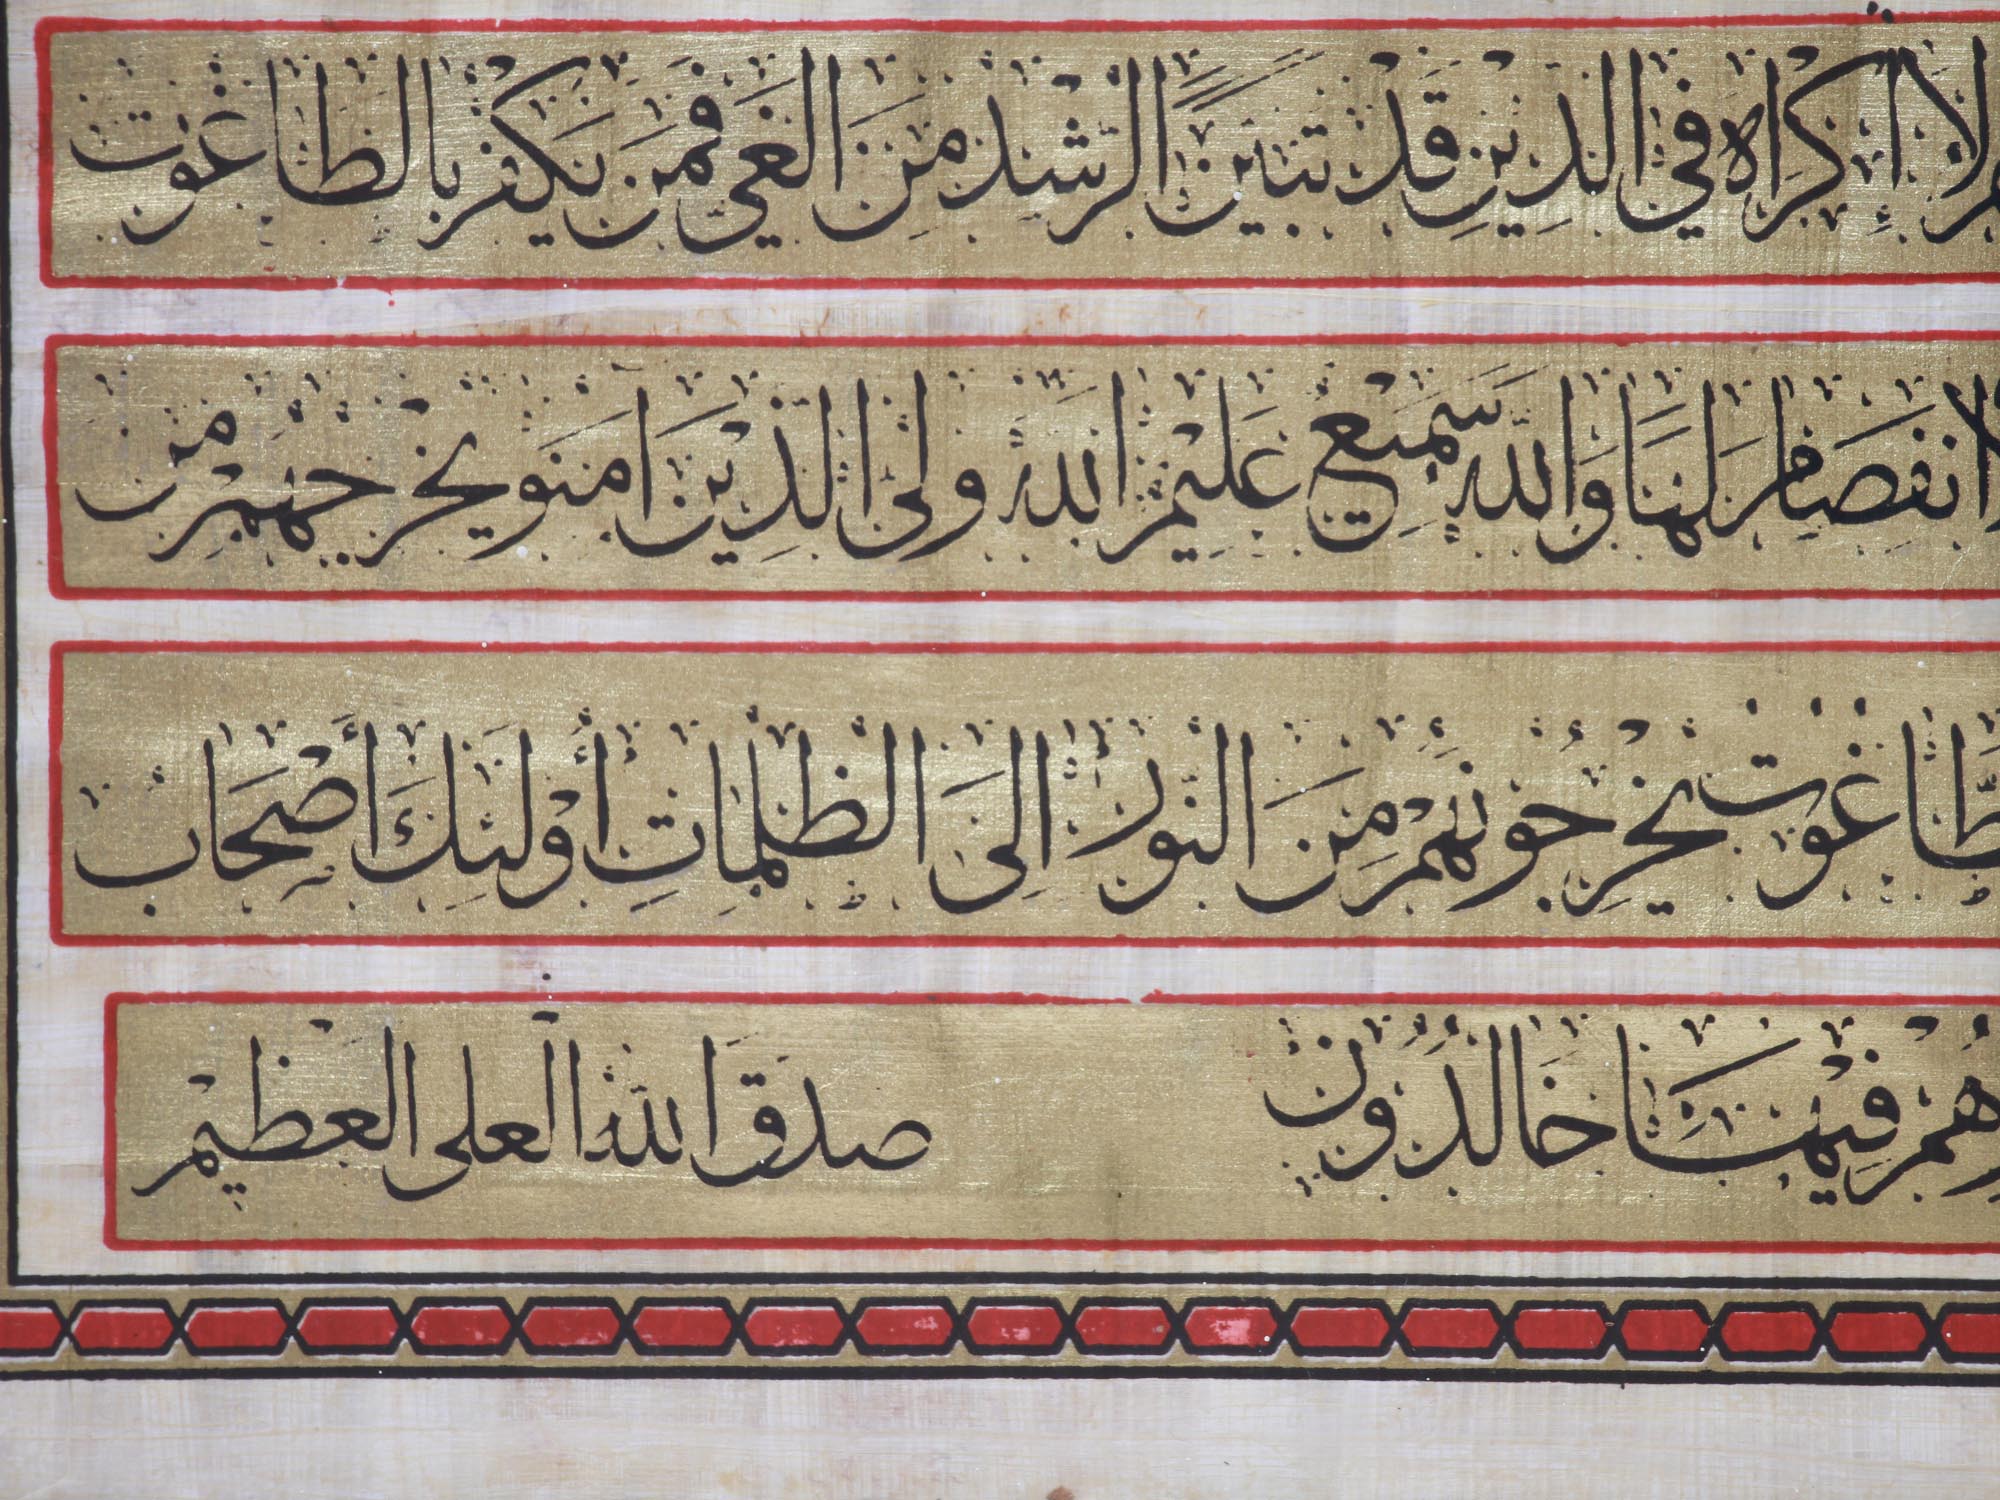 لا إكراه في الدين قد تبين الرشد من الغي فمن يكفر بالطاغوت
لا انفصام لها والله سميع عليم الله ولى الذين امنو يخرجهم من
الطاغوت يخرجونهم من النور الى الظلمات أولئك أصحاب
هم فيها خالدون صدق الله العلى العظيم